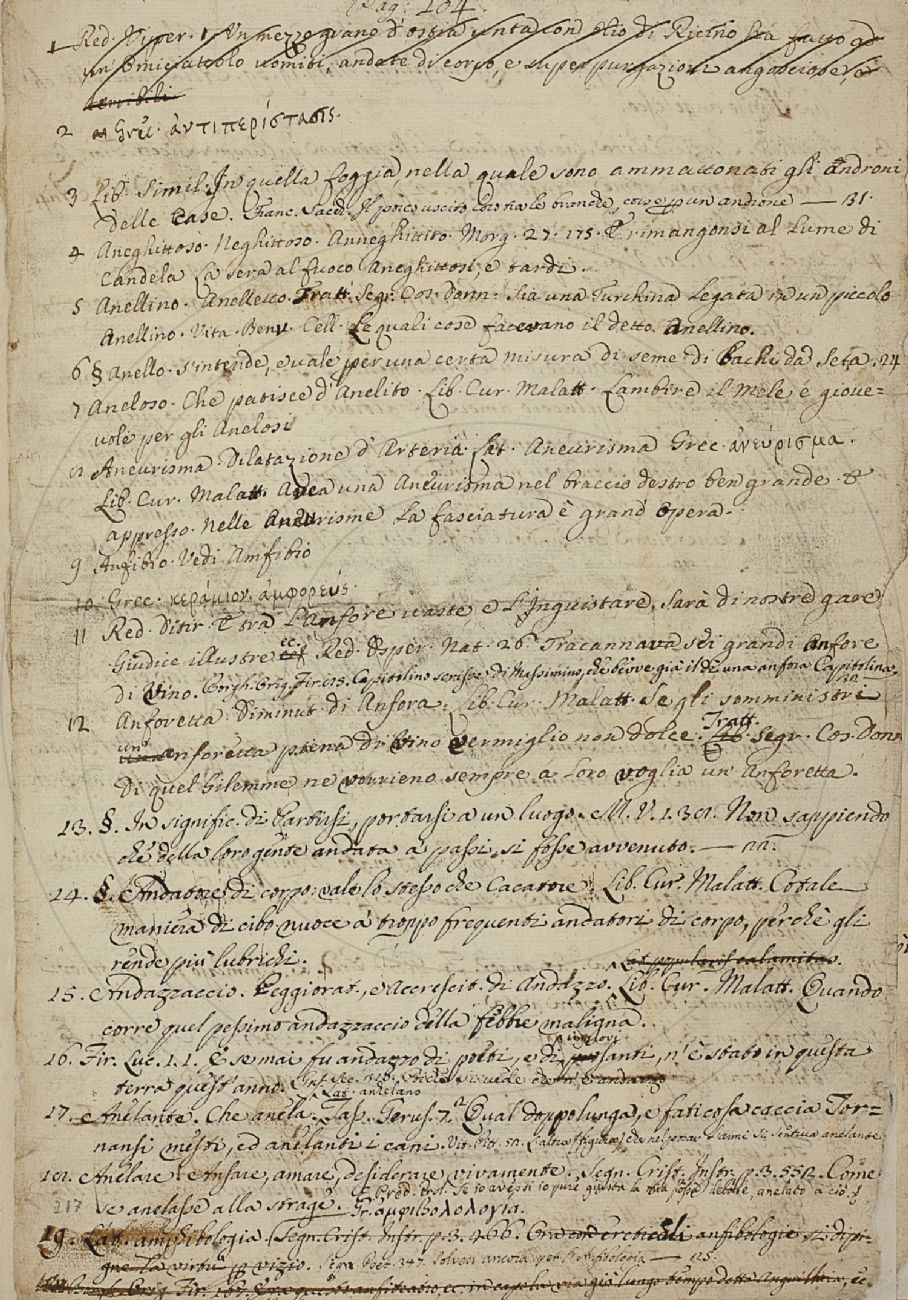 Pag: 104.
1 Red. Viper. 1. Un mezzo grano d'ostia unta con olio di Ricino fatto
un omicciattolo vomiti, andate di corpo, e superpurgazioni angosciose, e
terribili
2 Grec. ἀντιπερίστασις.
3 Lib. Simil. In quella foggia, nella quale sono ammattonati gli Androni
delle Case. Franc. Sacch. 131.
4 Aneghittoso. Neghittoso. Anneghittito. Morg. 27. 175. E rimangonsi al Lume di
Candela La sera al fuoco Aneghittosi, e tardi.
5 Anellino. Anelletto. Tratt. Segr. Cos. Donn. Sia una Turchina Legata in un piccolo
Anellino. Vita. Benv. Cell. Le quali cose facevano il detto Anellino.
6 § Anello. s'intende, e vale per una certa misura di seme di Bachi da Seta. 24
7 Aneloso. Che patisce d'Anelito. Lib. Cur. Malatt. Lambire il Mele è giove=
vole per gli Anelosi
Aneurisma. Dilatazione d'Arteria. Lat. Aneurisma Grec. ἀνεύρισμα.
Lib. Cur. Malatt. Avea una Aneurisma nel braccio destro ben grande. E
appresso. Nelle Aneurisme La fasciatura è grand'opera.
9 Anfibio. Vedi Amfibio
10. Grec. κεράμιον. ἀμφορεύς.
11 Red. Ditir. E tra L'anfore vaste, e L'Inguistare, Sarà di nostre gare
Giudice illustre ec. Red. Esper. Nat. 26. Tracannava sei grandi Anfore
di Vino. Borgh. Orig. Fir. Capitolino scrisse di Massimino, che bevve già il dì una anfora Capitolina
12 Anforetta. Diminut. di Anfora. Lib. Cur. Malatt. Se gli somministri
un' anforetta piena di Vino Vermiglio non dolce. Tratt. Segr. Cos. Donn.
Di quel Gilemme ne vorrieno sempre a Loro voglia un'Anforetta.
13. §. In signific. di Partirsi, portarsi a un luogo. M. V. 1. Non sappiendo
che della loro gente andata a passi, si fosse avvenuto.
14. §. Andatore di corpo: vale lo stesso che Cacatore. Lib. Cur. Malatt. Cotale
maniera di cibo nuoce a' troppo frequenti andatori di corpo, perchè gli
rende più lubrichi.
15. Andazzaccio. Peggiorat., e Accrescit. di Andazzo. Lib. Cur. Malatt. Quando
corre quel pessimo andazzaccio della febbre maligna.
16. Fir. Luc. 1. 1. E se mai fu andazzo di, n'è stato in questa
terra quest'anno.
Lat. anelans
17. Anelante. Che anela. Tass. Gerus. 7. 2 Qual doppo lunga, e faticosa caccia Tor=
nansi mesti, ed anelanti i cani.
Anelare. Ansare, amare, desiderare vivamente. Segn. Crist. Instr. p. 3. Come
se anelasse alla strage.
217
Gr. ἀμφιβολολογία.
19. Lat. amphibologia. Segn. Crist. Instr. p. 3. 466. Ora con ereticali anfibologie si dipi-
gne la virtù p vizio.